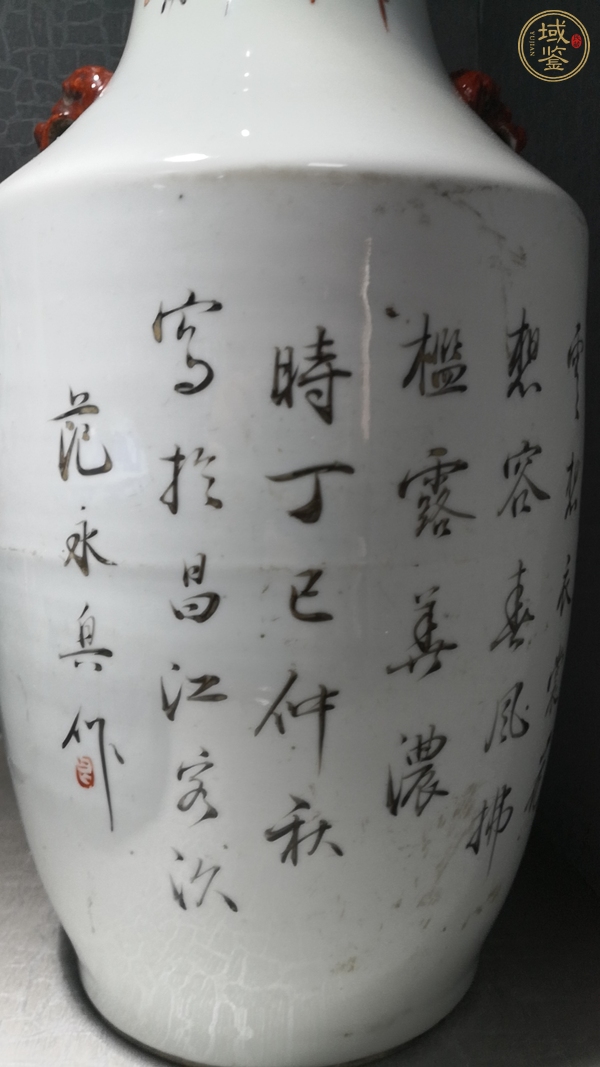 雲想衣裳花
想容春風拂
檻露華濃
時丁巳仲秋
寫於昌江客次
范永興作
域鉴
YUJIAN